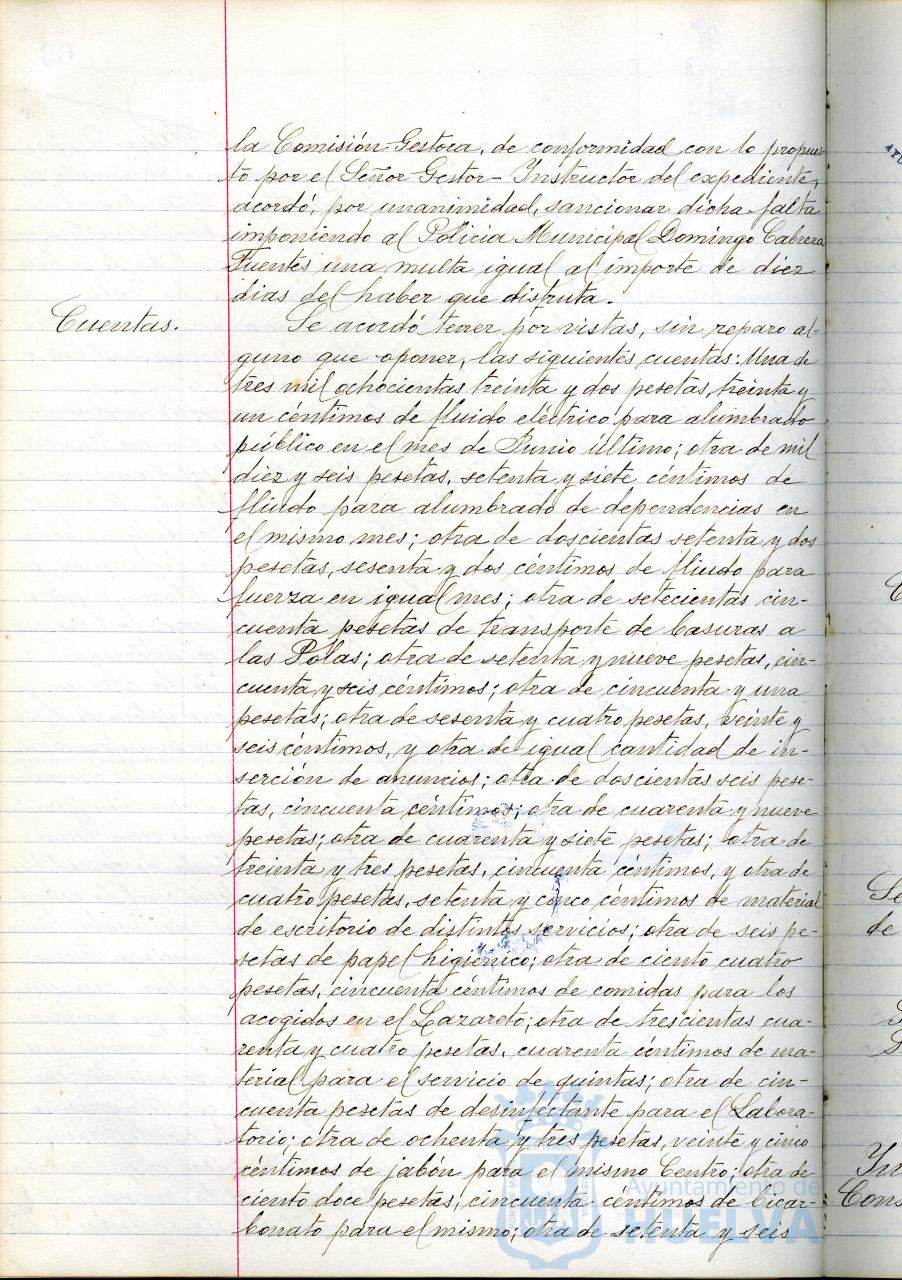 la Comisión-Gestora, de conformidad con lo propues-
to por el Señor Gestor- Instructor del expediente,
acordó, por unanimidad, sancionar dicha falta
imponiendo al Policia Municipal Domingo Cabrera
Fuentes una multa igual al importe de diez
dias del haber que disfruta.
Cuentas.
Se acordó tener por vistas, sin reparo al-
guno que oponer, las siguientes cuentas: Una de
tres mil ochocientas treinta y dos pesetas, treinta y
un céntimos de fluido eléctrico para alumbrado
público en el mes de Junio último; otra de mil
diez y seis pesetas, setenta y siete céntimos de
fluido para alumbrado de dependencias en
el mismo mes; otra de doscientas setenta y dos
pesetas, sesenta y dos céntimos de fluido para
fuerza en igual mes; otra de setecientas cin-
cuenta pesetas de transporte de basuras a
las Polas; otra de setenta y nueve pesetas, cin-
cuenta y seis céntimos; otra de cincuenta y una
pesetas; otra de sesenta y cuatro pesetas, veinte y
seis céntimos, y otra de igual cantidad de in-
serción de anuncios; otra de doscientas seis pese-
tas, cincuenta céntimos; otra de cuarenta y nueve
pesetas; otra de cuarenta y siete pesetas; otra de
treinta y tres pesetas, cincuenta céntimos, y otra de
cuatro pesetas, setenta y cinco céntimos de material
de escritorio de distintos servicios; otra de seis pe-
setas de papel higiénico; otra de ciento cuatro
pesetas, cincuenta céntimos de comidas para los
acogidos en el Lazareto; otra de trescientas cua-
renta y cuatro pesetas, cuarenta céntimos de ma-
terial para el servicio de quintas; otra de cin-
cuenta pesetas de desinfectante para el Labora-
torio; otra de ochenta y tres pesetas, veinte y cinco
céntimos de jabón para el mismo Centro; otra de
ciento doce pesetas, cincuenta céntimos de bicar-
bonato para el mismo; otra de setenta y seis
Ayuntamiento de
HUELVA
Se
de
Cons